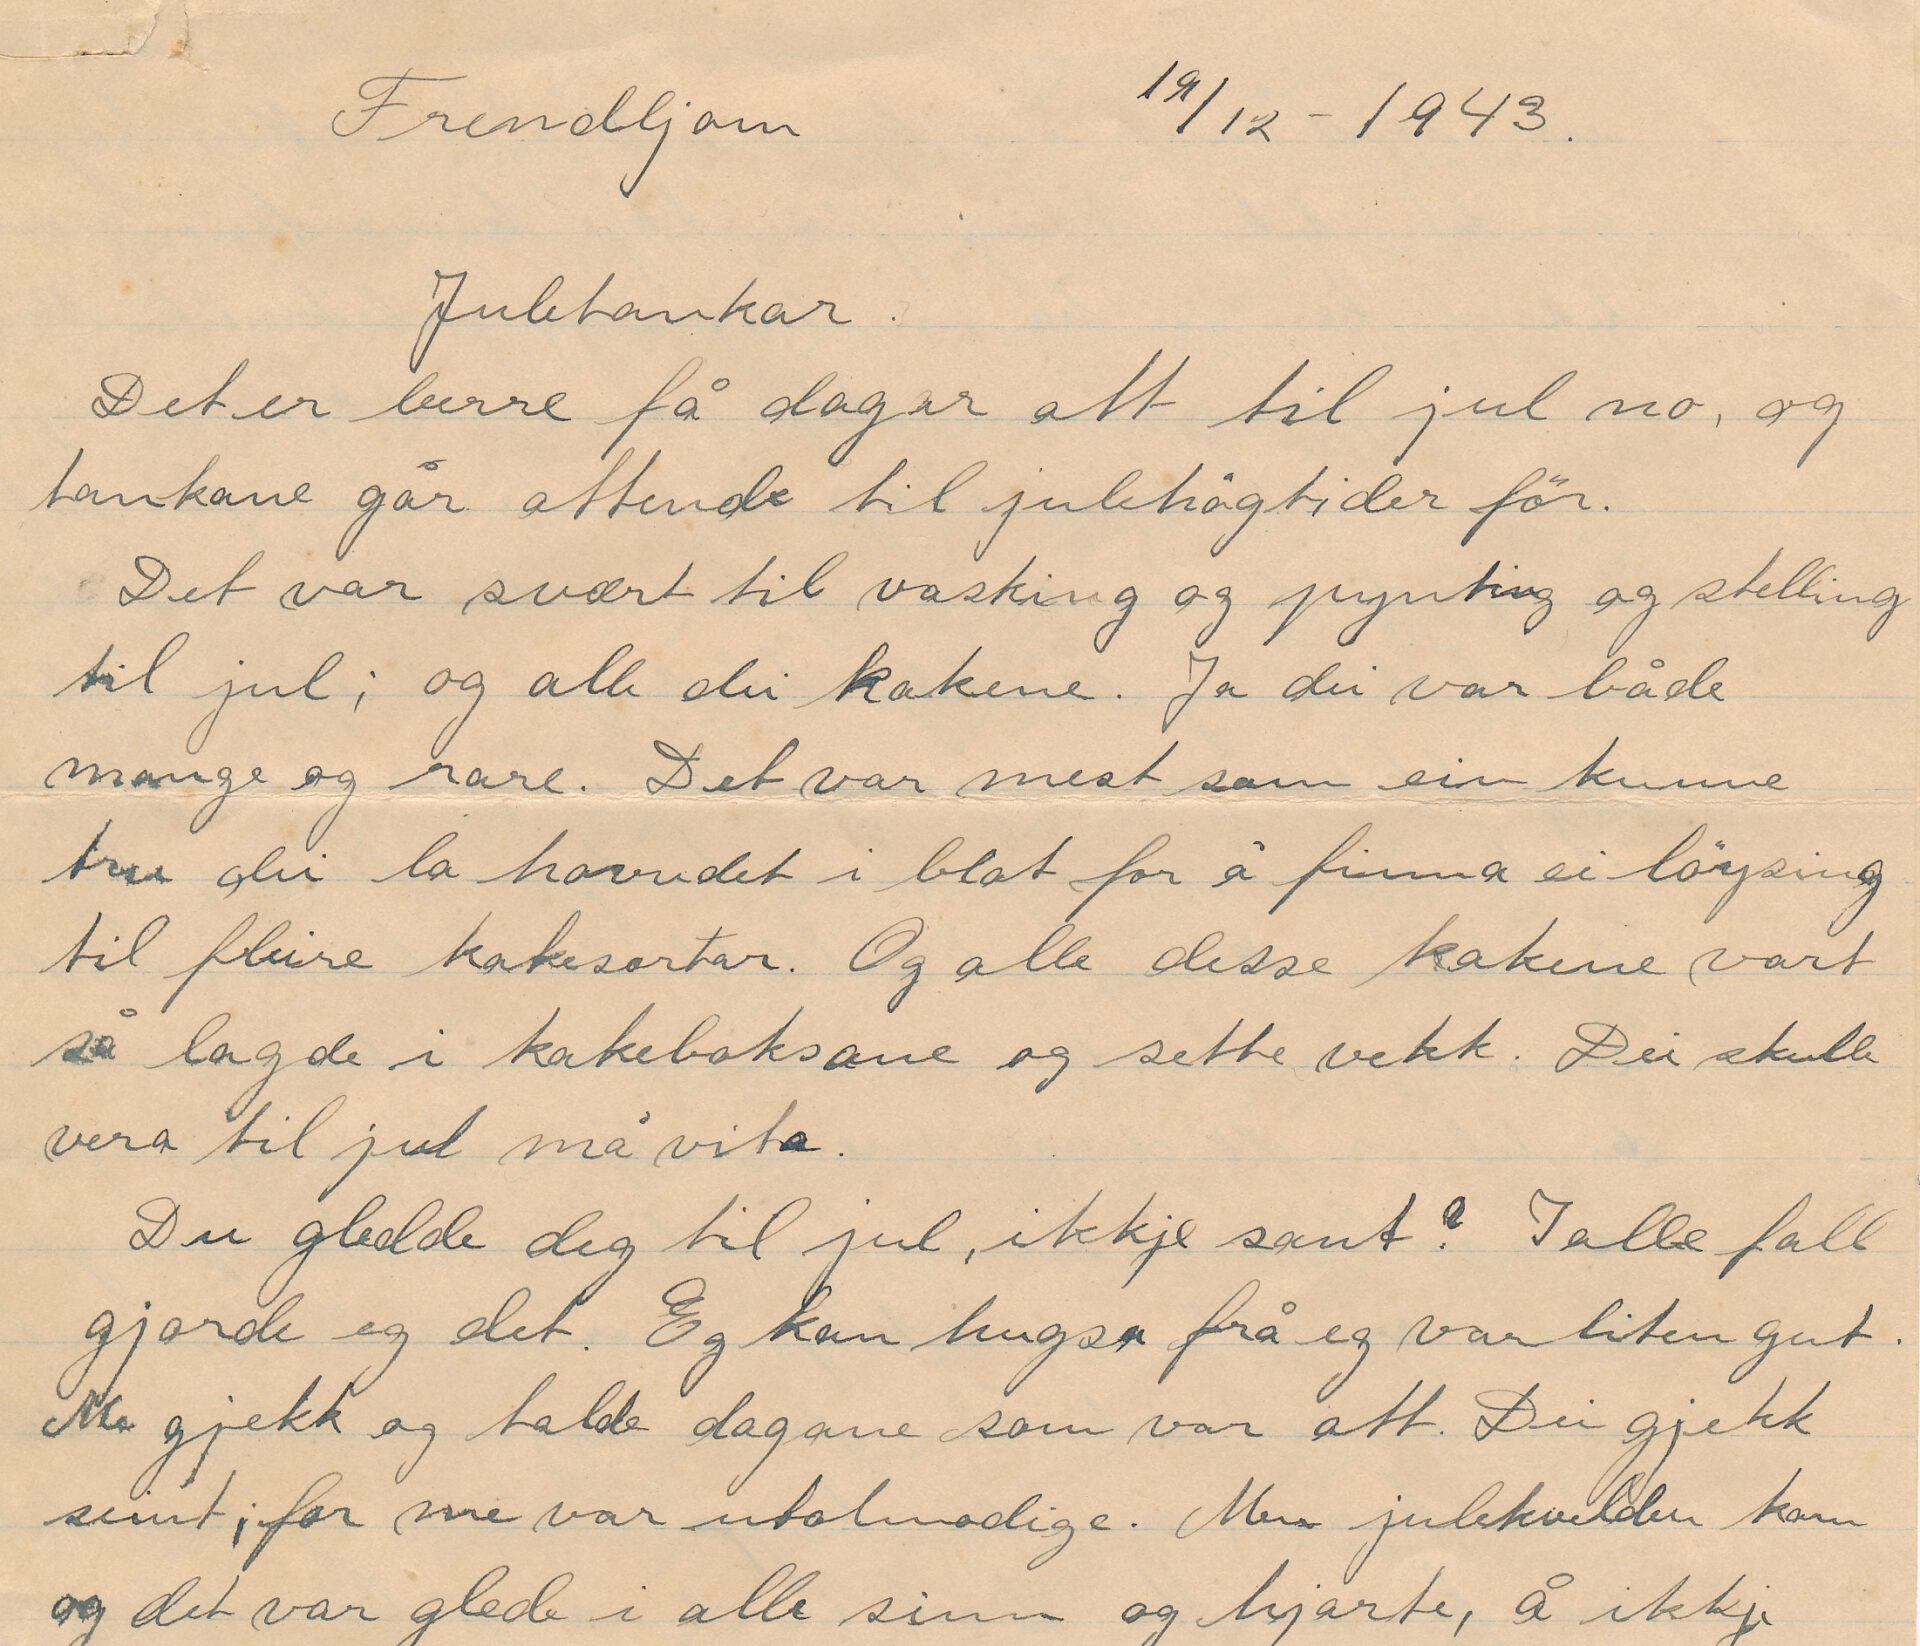 Frendljom 19/12 - 1943.
Juletankar.
Det er berre få dagar att til jul no, og
tankane går attende til julehögtider för.
Det var svært til vasking og pynting og stelling
til jul; og alle dei kakene. Ja dei var både
mange og rare. Det var mest som ein kunne
tru dei la hovudet i blot for å finna ei löysing
til fleire kakesortar. Og alle desse kakene vart
så lagde i kakeboksane og sette vekk. Dei skulle
vera til jul må vita.
Du gledde deg til jul, ikkje sant? I alle fall
gjorde eg det. Eg kan hugsa frå eg var liten gut.
Me gjekk og talde dagane som var att. Dei gjekk
seint; for me var utolmodige. Men julekvelden kom
og det var glede i alle sinn og hjarte, å ikkje